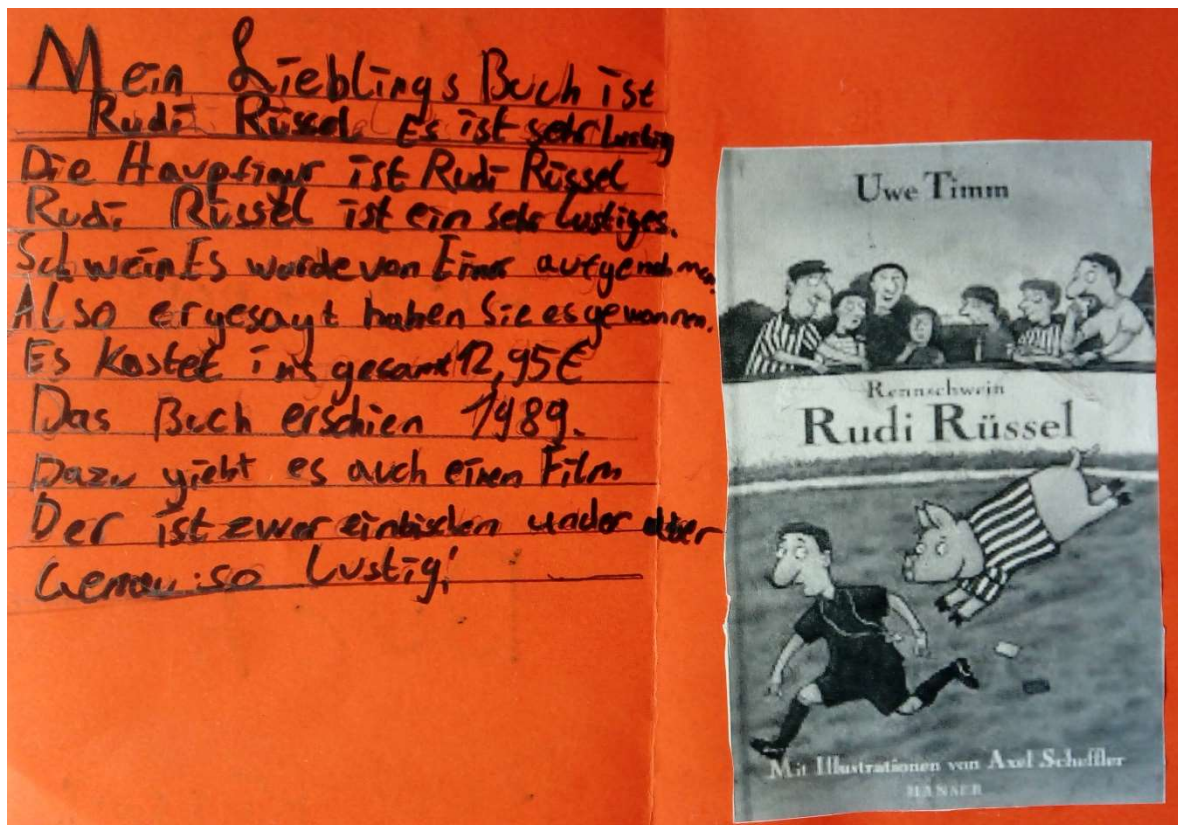 Mein Lieblings Buch ist
Rudi Rüssel Es ist sehr lustig
Die Haupfigur ist Rudi Rüssel
Rudi Rüssel ist ein sehr lustiges.
Schwein Es wurde von Einer aufgenohmen.
Also ergesagt haben Sie es gewonnen.
Es kostet ins gesamt 12,95€
Das Buch erschien 1989.
Dazu giebt es auch einen Film
Der ist zwar einbischen aber
Genau so lustig!
Uwe Timm
Rennschwein
Rudi Rüssel
Mit Illustrationen von Axel Scheffler
HANSER